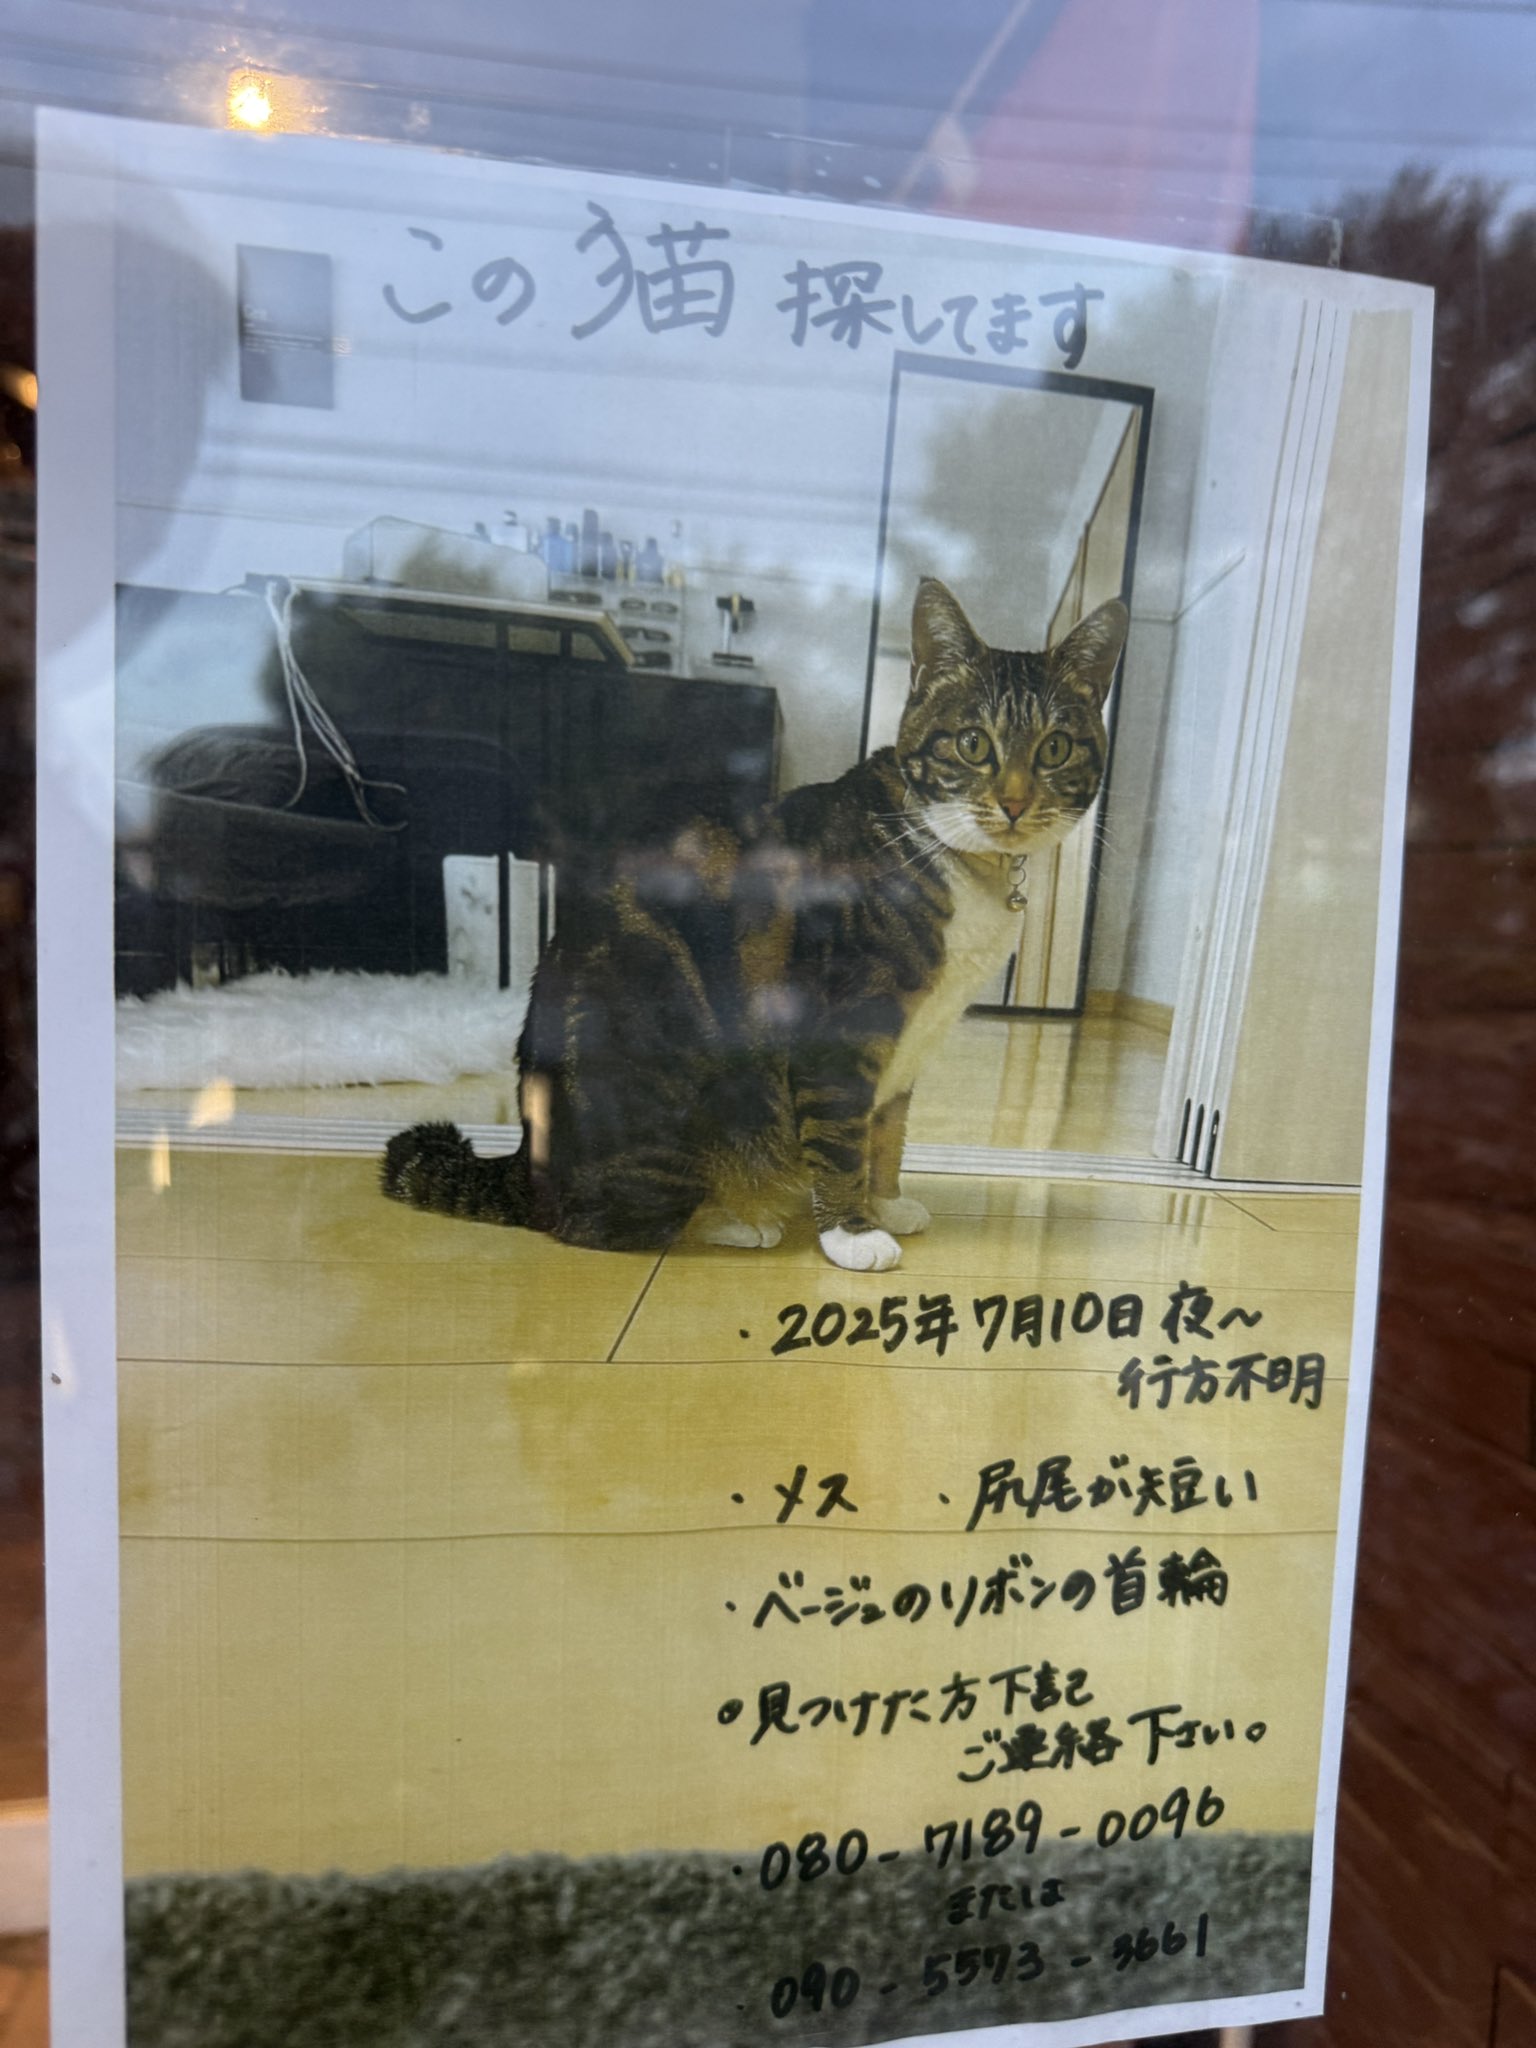 この猫探してます
・2025年7月10日 夜〜
行方不明
・メス ・尻尾が短い
・ベージュのリボンの首輪
◦見つけた方下記
ご連絡下さい。
・080-7189-0096
または
・090-5573-3661